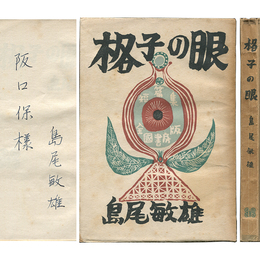 阪口保様
島尾敏雄
格子の眼
島尾敏雄
格子の眼
島尾敏雄